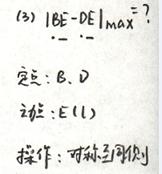 (3) |BE-DE|max=?
定点：B、D
动点：E(l)
操作：对称至同侧